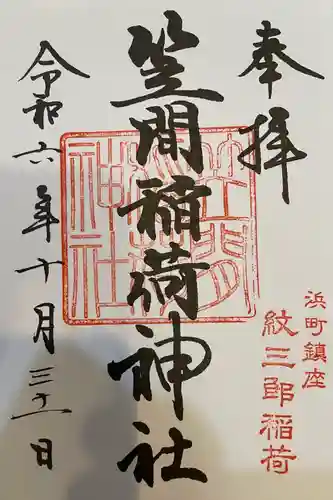 奉拝
笠間稲荷神社
笠間稲荷神社
浜町鎮座
紋三郎稲荷
令和六年十月三十一日